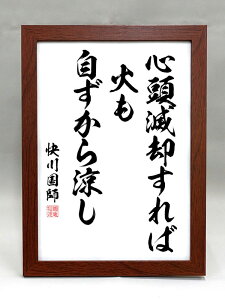 心頭滅却すれば
火も
自ずから涼し
快川国師